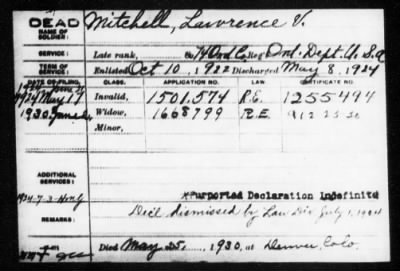 DEAD
NAME OF SOLDIER: Mitchell, Lawrence V.
SERVICE: Late rank, Co. 74 Ord Co Reg't Ord. Dept. U.S.A
TERM OF SERVICE: Enlisted Oct 10, 1922 Discharged May 8, 1924
DATE OF FILING. CLASS. APPLICATION NO. LAW CERTIFICATE NO.
1924 May 17 Invalid, 1501,574 R.E. 1255494
1930 June Widow, 1668799 R.E. 912 25-30
Minor,
ADDITIONAL SERVICES:
Purported Declaration Indefinite
REMARKS: Decl dismissed by Law Div July 1, 1924
Died May 25, 1930, at Denver, Colo.